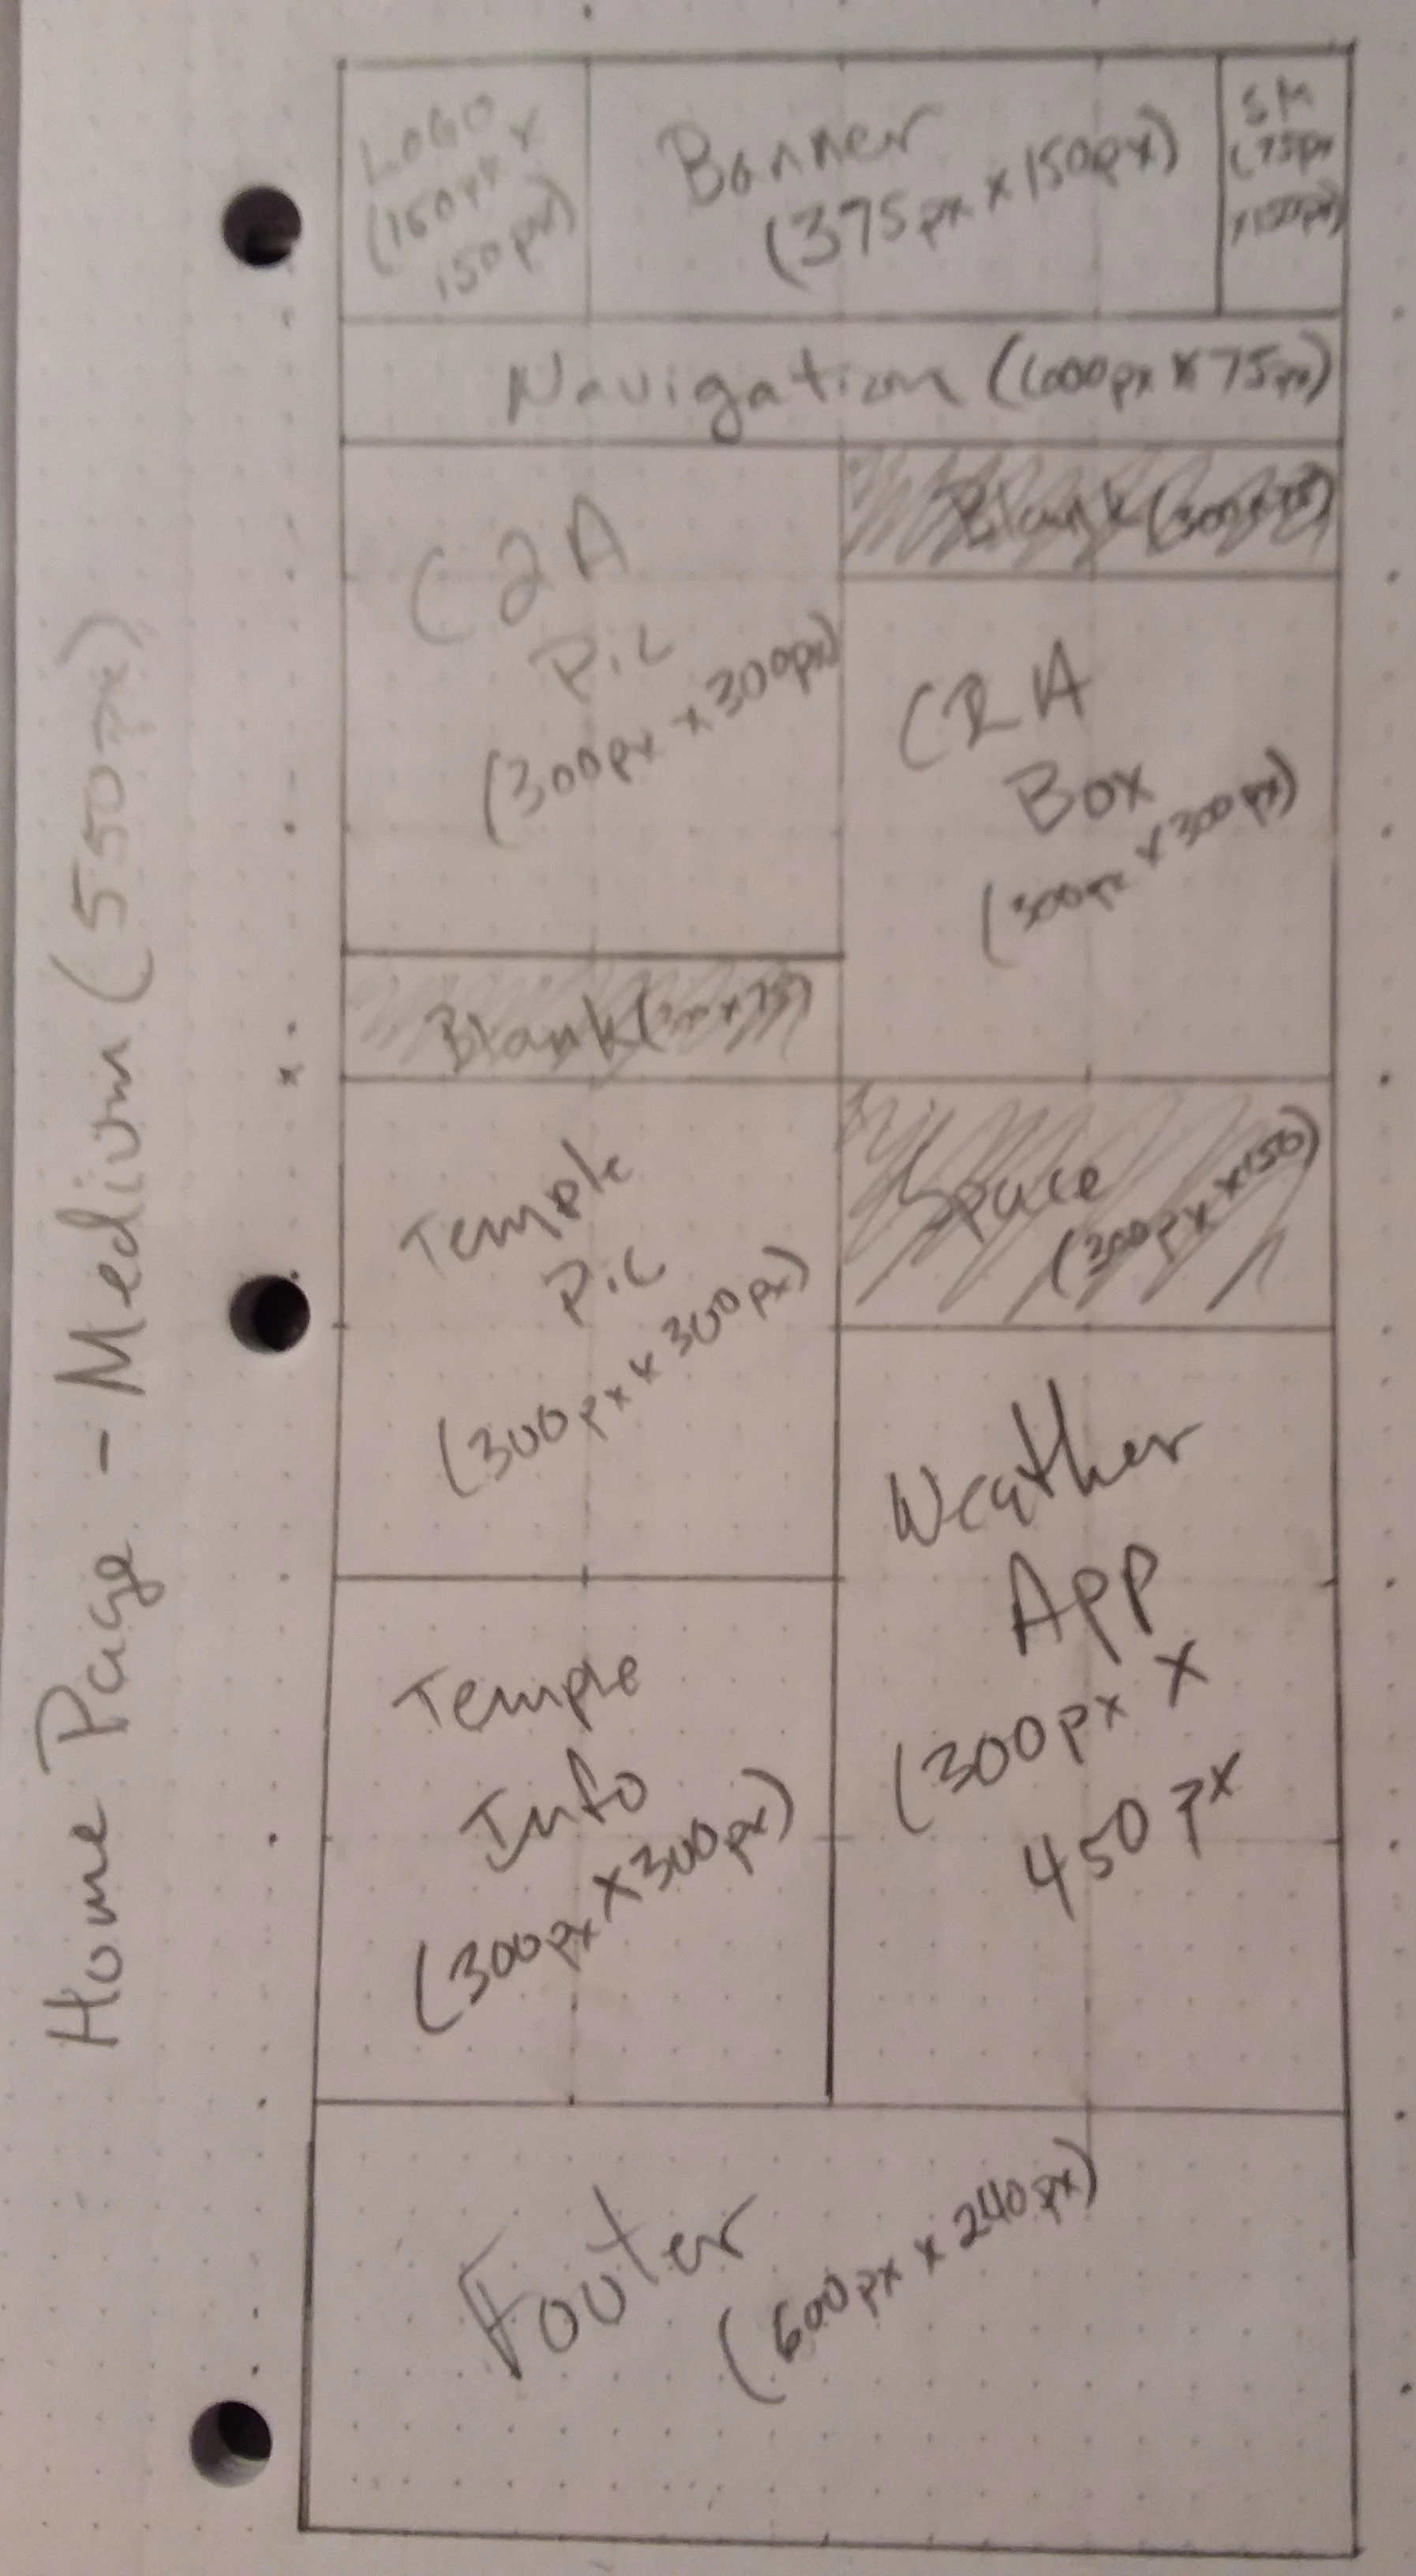 Home Page - Medium (550px)
LOGO
(150px x
150px)
Banner
(375px x 150px)
SM
(75px
Navigation (600px x 75px)
C2A
Pic
(300px x 300px)
Blank (300 x 75)
C2A
Box
(300px x 300px)
Blank
Temple
Pic
(300px x 300px)
Space
(300px x 150)
Weather
App
(300px x
450px
Temple
Info
(300px x 300px)
Footer
(600px x 240px)